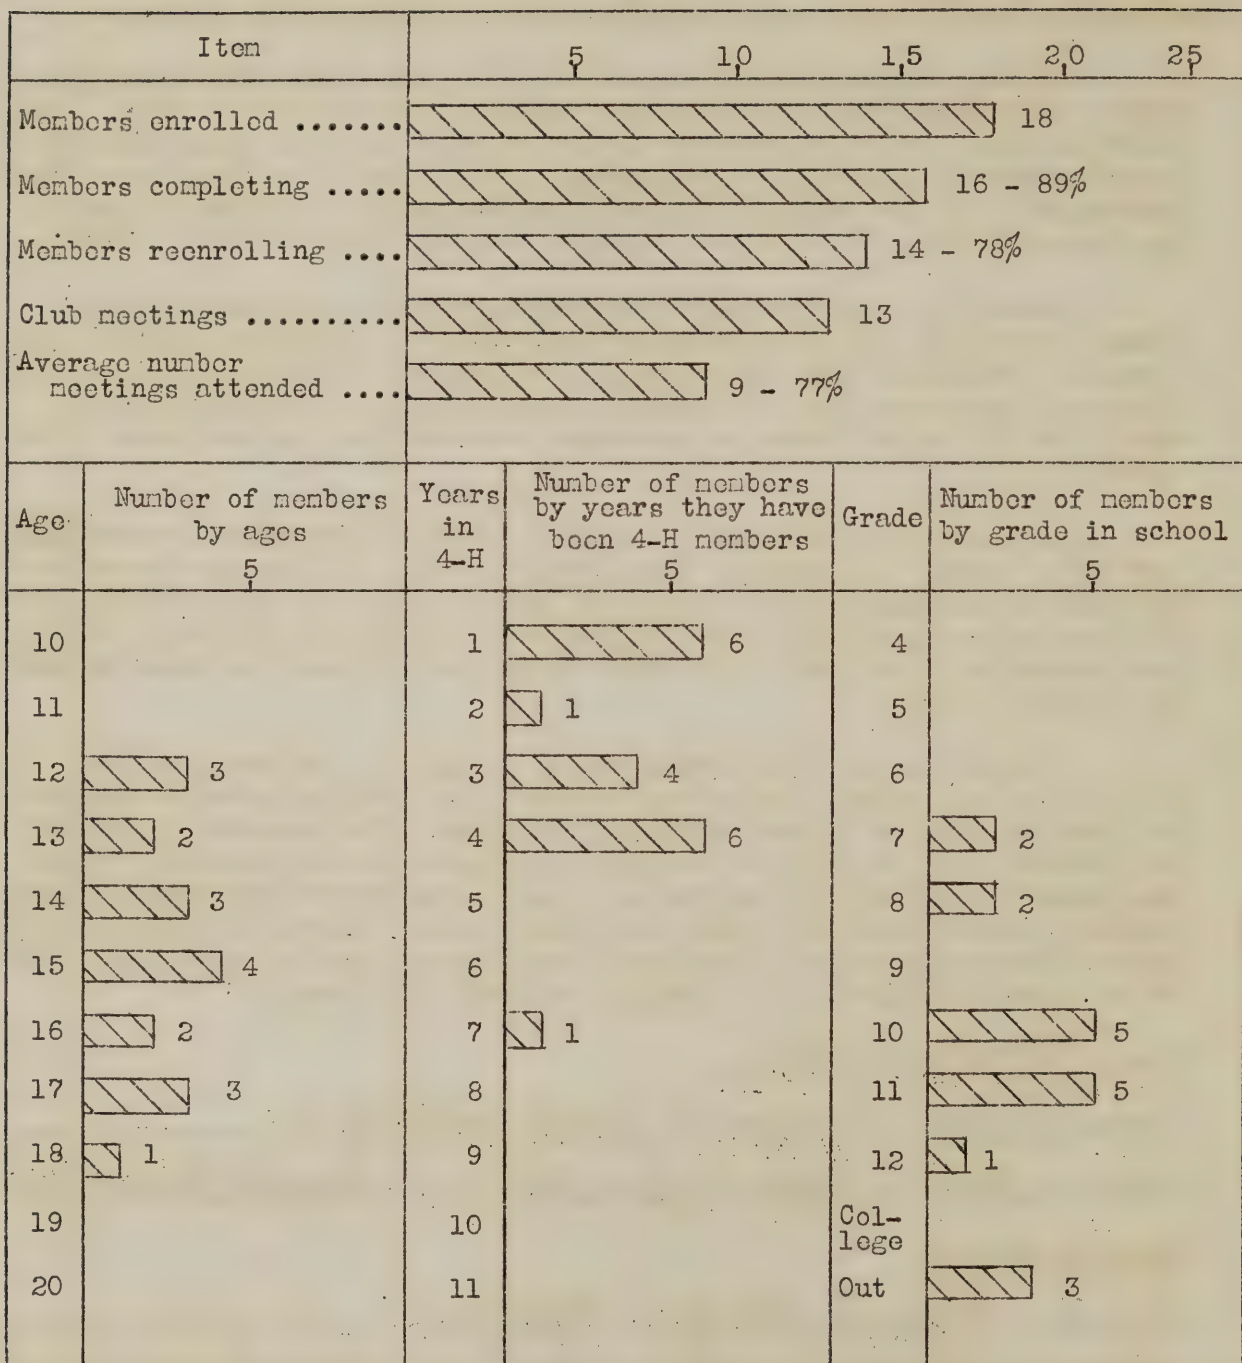 Item 5 10 15 20 25
Members enrolled ....... 18
Members completing ..... 16 - 89%
Members reenrolling .... 14 - 78%
Club meetings .......... 13
Average number
meetings attended .... 9 - 77%
Age
Number of members
by ages
5
Years
in
4-H
Number of members
by years they have
been 4-H members
5
Grade
Number of members
by grade in school
5
10 1 6 4
11 2 1 5
12 3 3 4 6
13 2 4 6 7 2
14 3 5 8 2
15 4 6 9
16 2 7 1 10 5
17 3 8 11 5
18 1 9 12 1
19 10 Col-
lege
20 11 Out 3